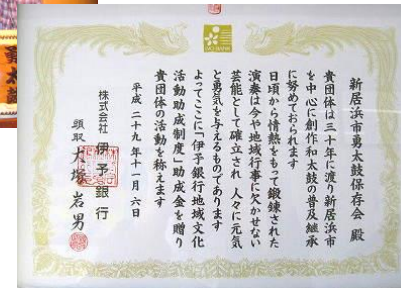 新居浜市勇太鼓保存会 殿
貴団体は三十年に渡り新居浜市
を中心に創作和太鼓の普及継承
に努めておられます
日頃から情熱をもって鍛錬された
演奏は今や地域行事に欠かせない
芸能として確立され 人々に元気
と勇気を与えるものであります
よってここに「伊予銀行地域文化
活動助成制度」助成金を贈り
貴団体の活動を称えます
平成二十九年十一月六日
株式会社 伊予銀行
頭取 大塚岩男
IYO BANK
勇太鼓